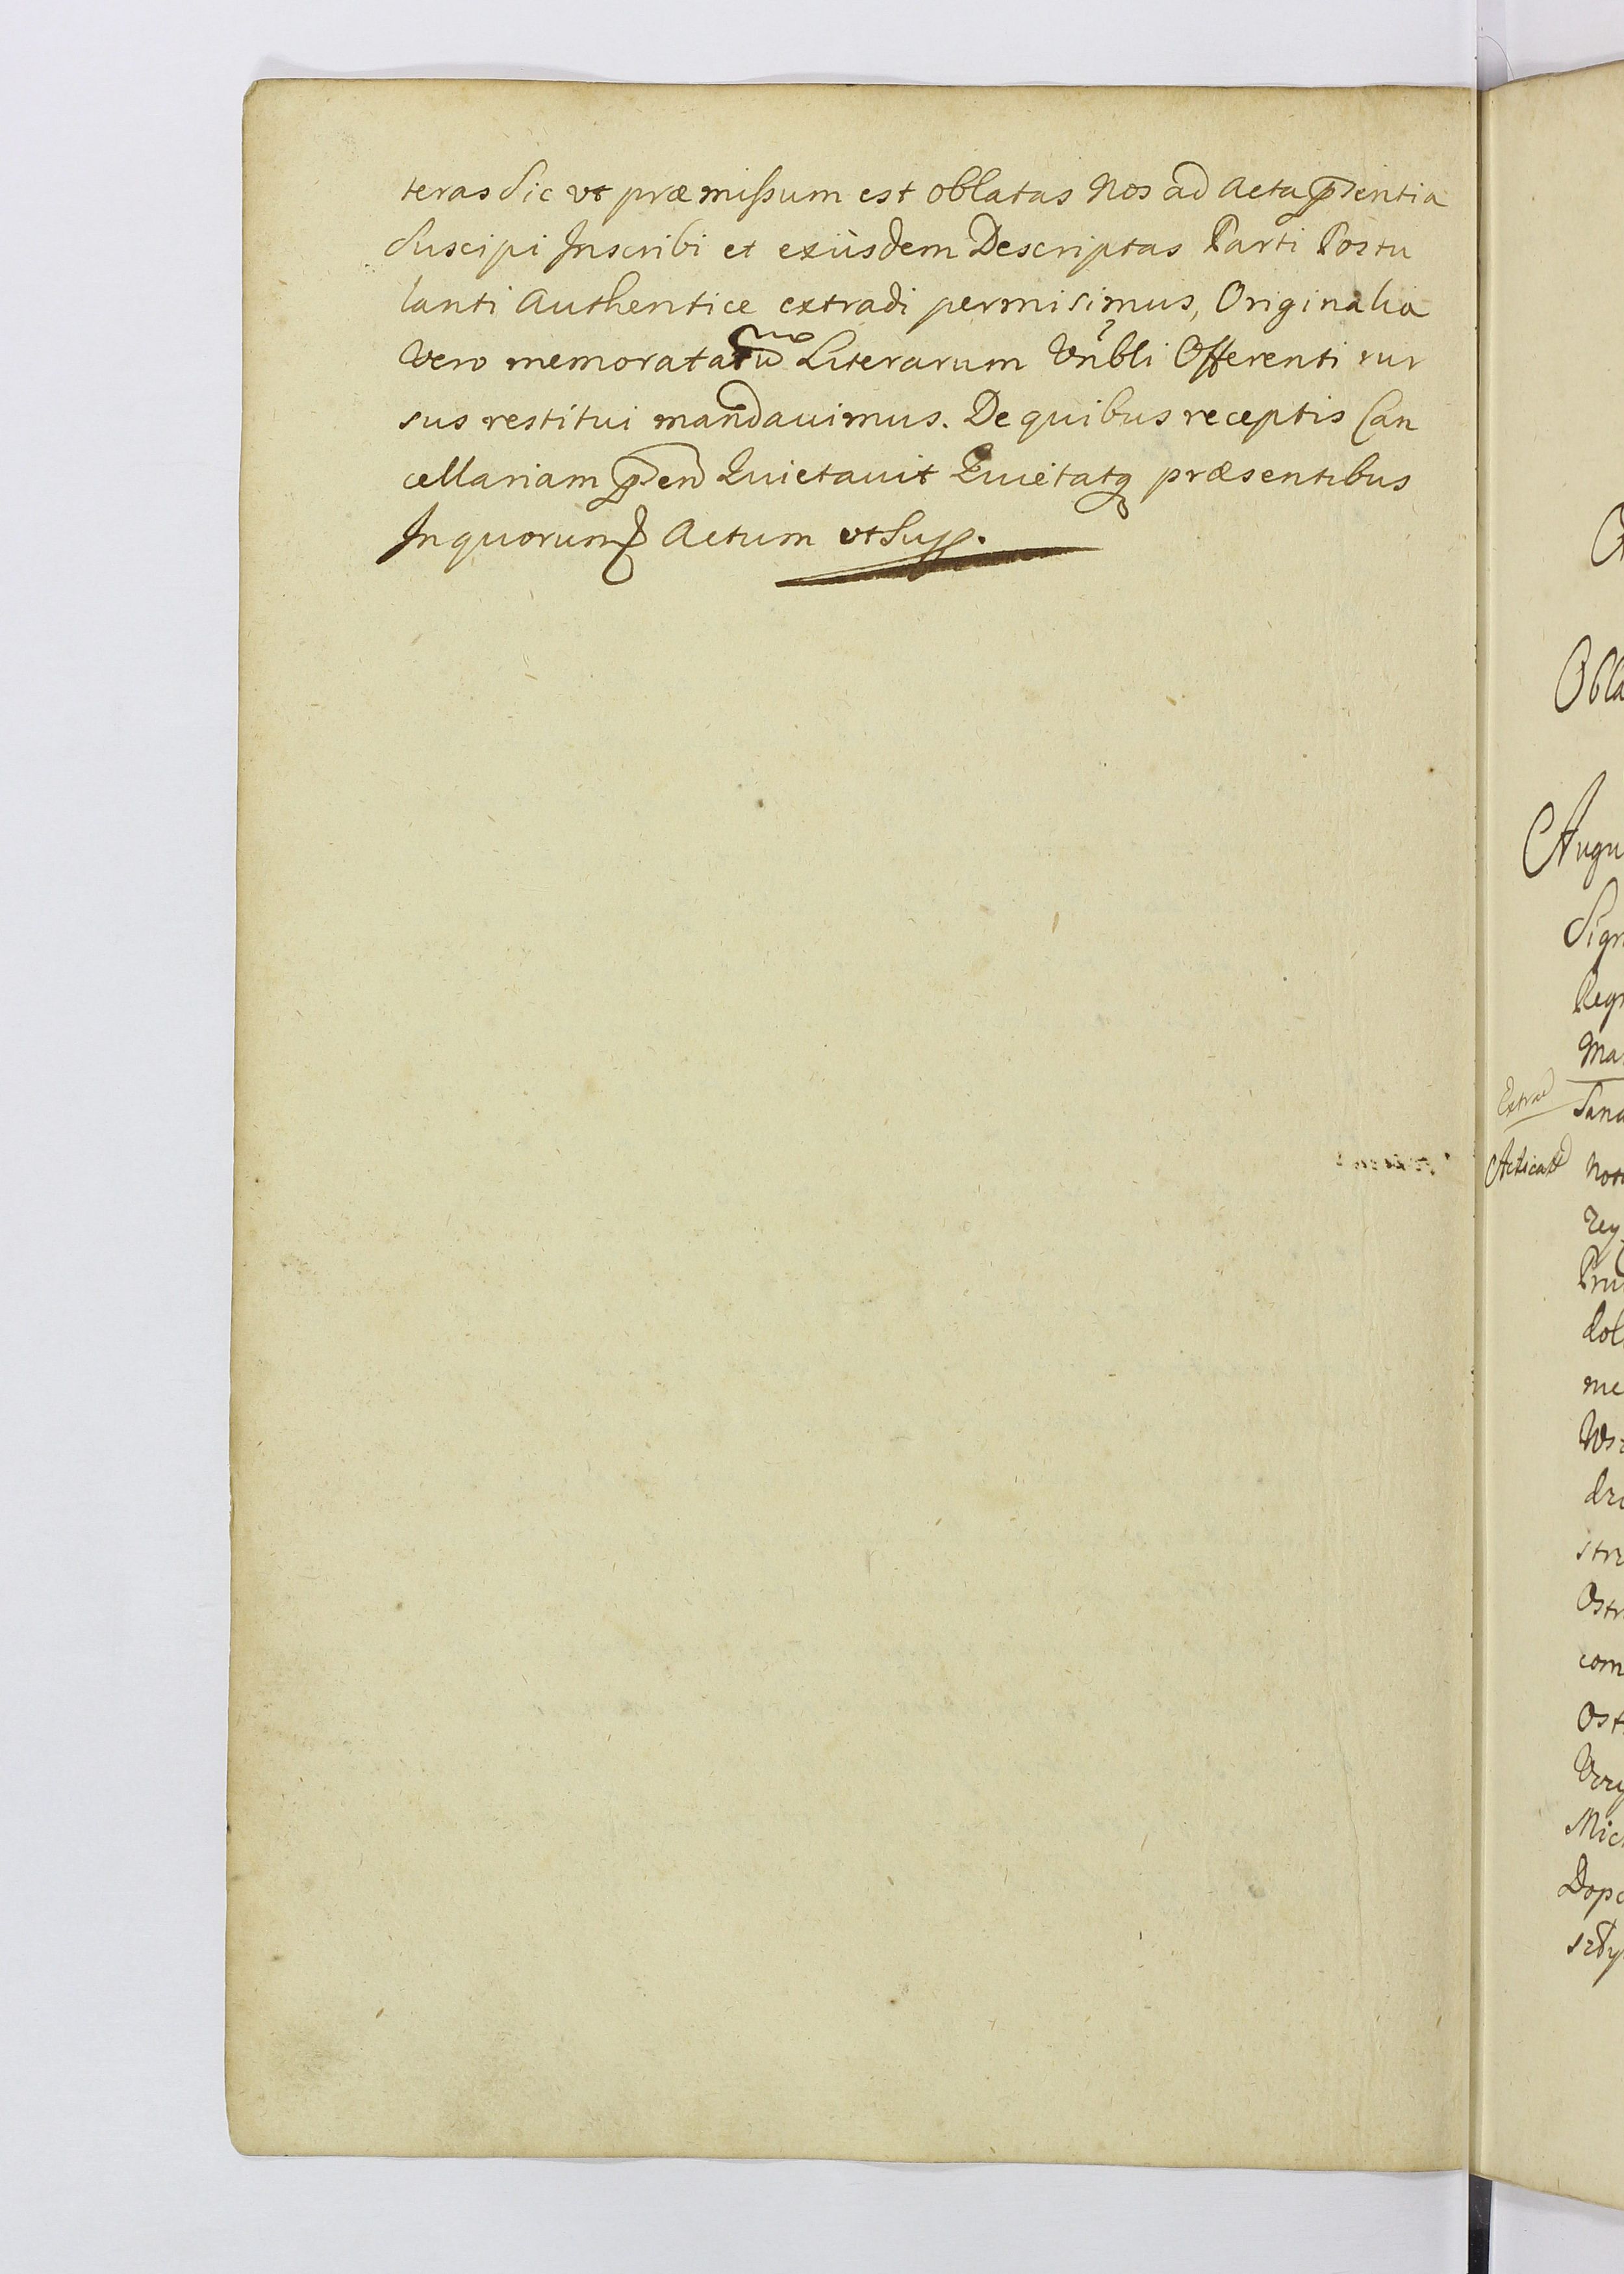 teras sic vt præmissum est oblatas Nos ad Acta pñsentia
suscipi Inscribi et exiisdem Descriptas Parti Postu
lanti Authentice extradi permisimus, Originalia
vero memoratarũ Literarum Offerenti rur
sus restitui mandauimus. De quibus receptis Can
cellariam Quietauit Quietatq præsentibus
In quorum Actum vt Sup.
Obla
Augu
Sign
Regn
Ma
Extrad
Acticat
dol
me
stre
Ostr
com
Ost
Mic
Dopo